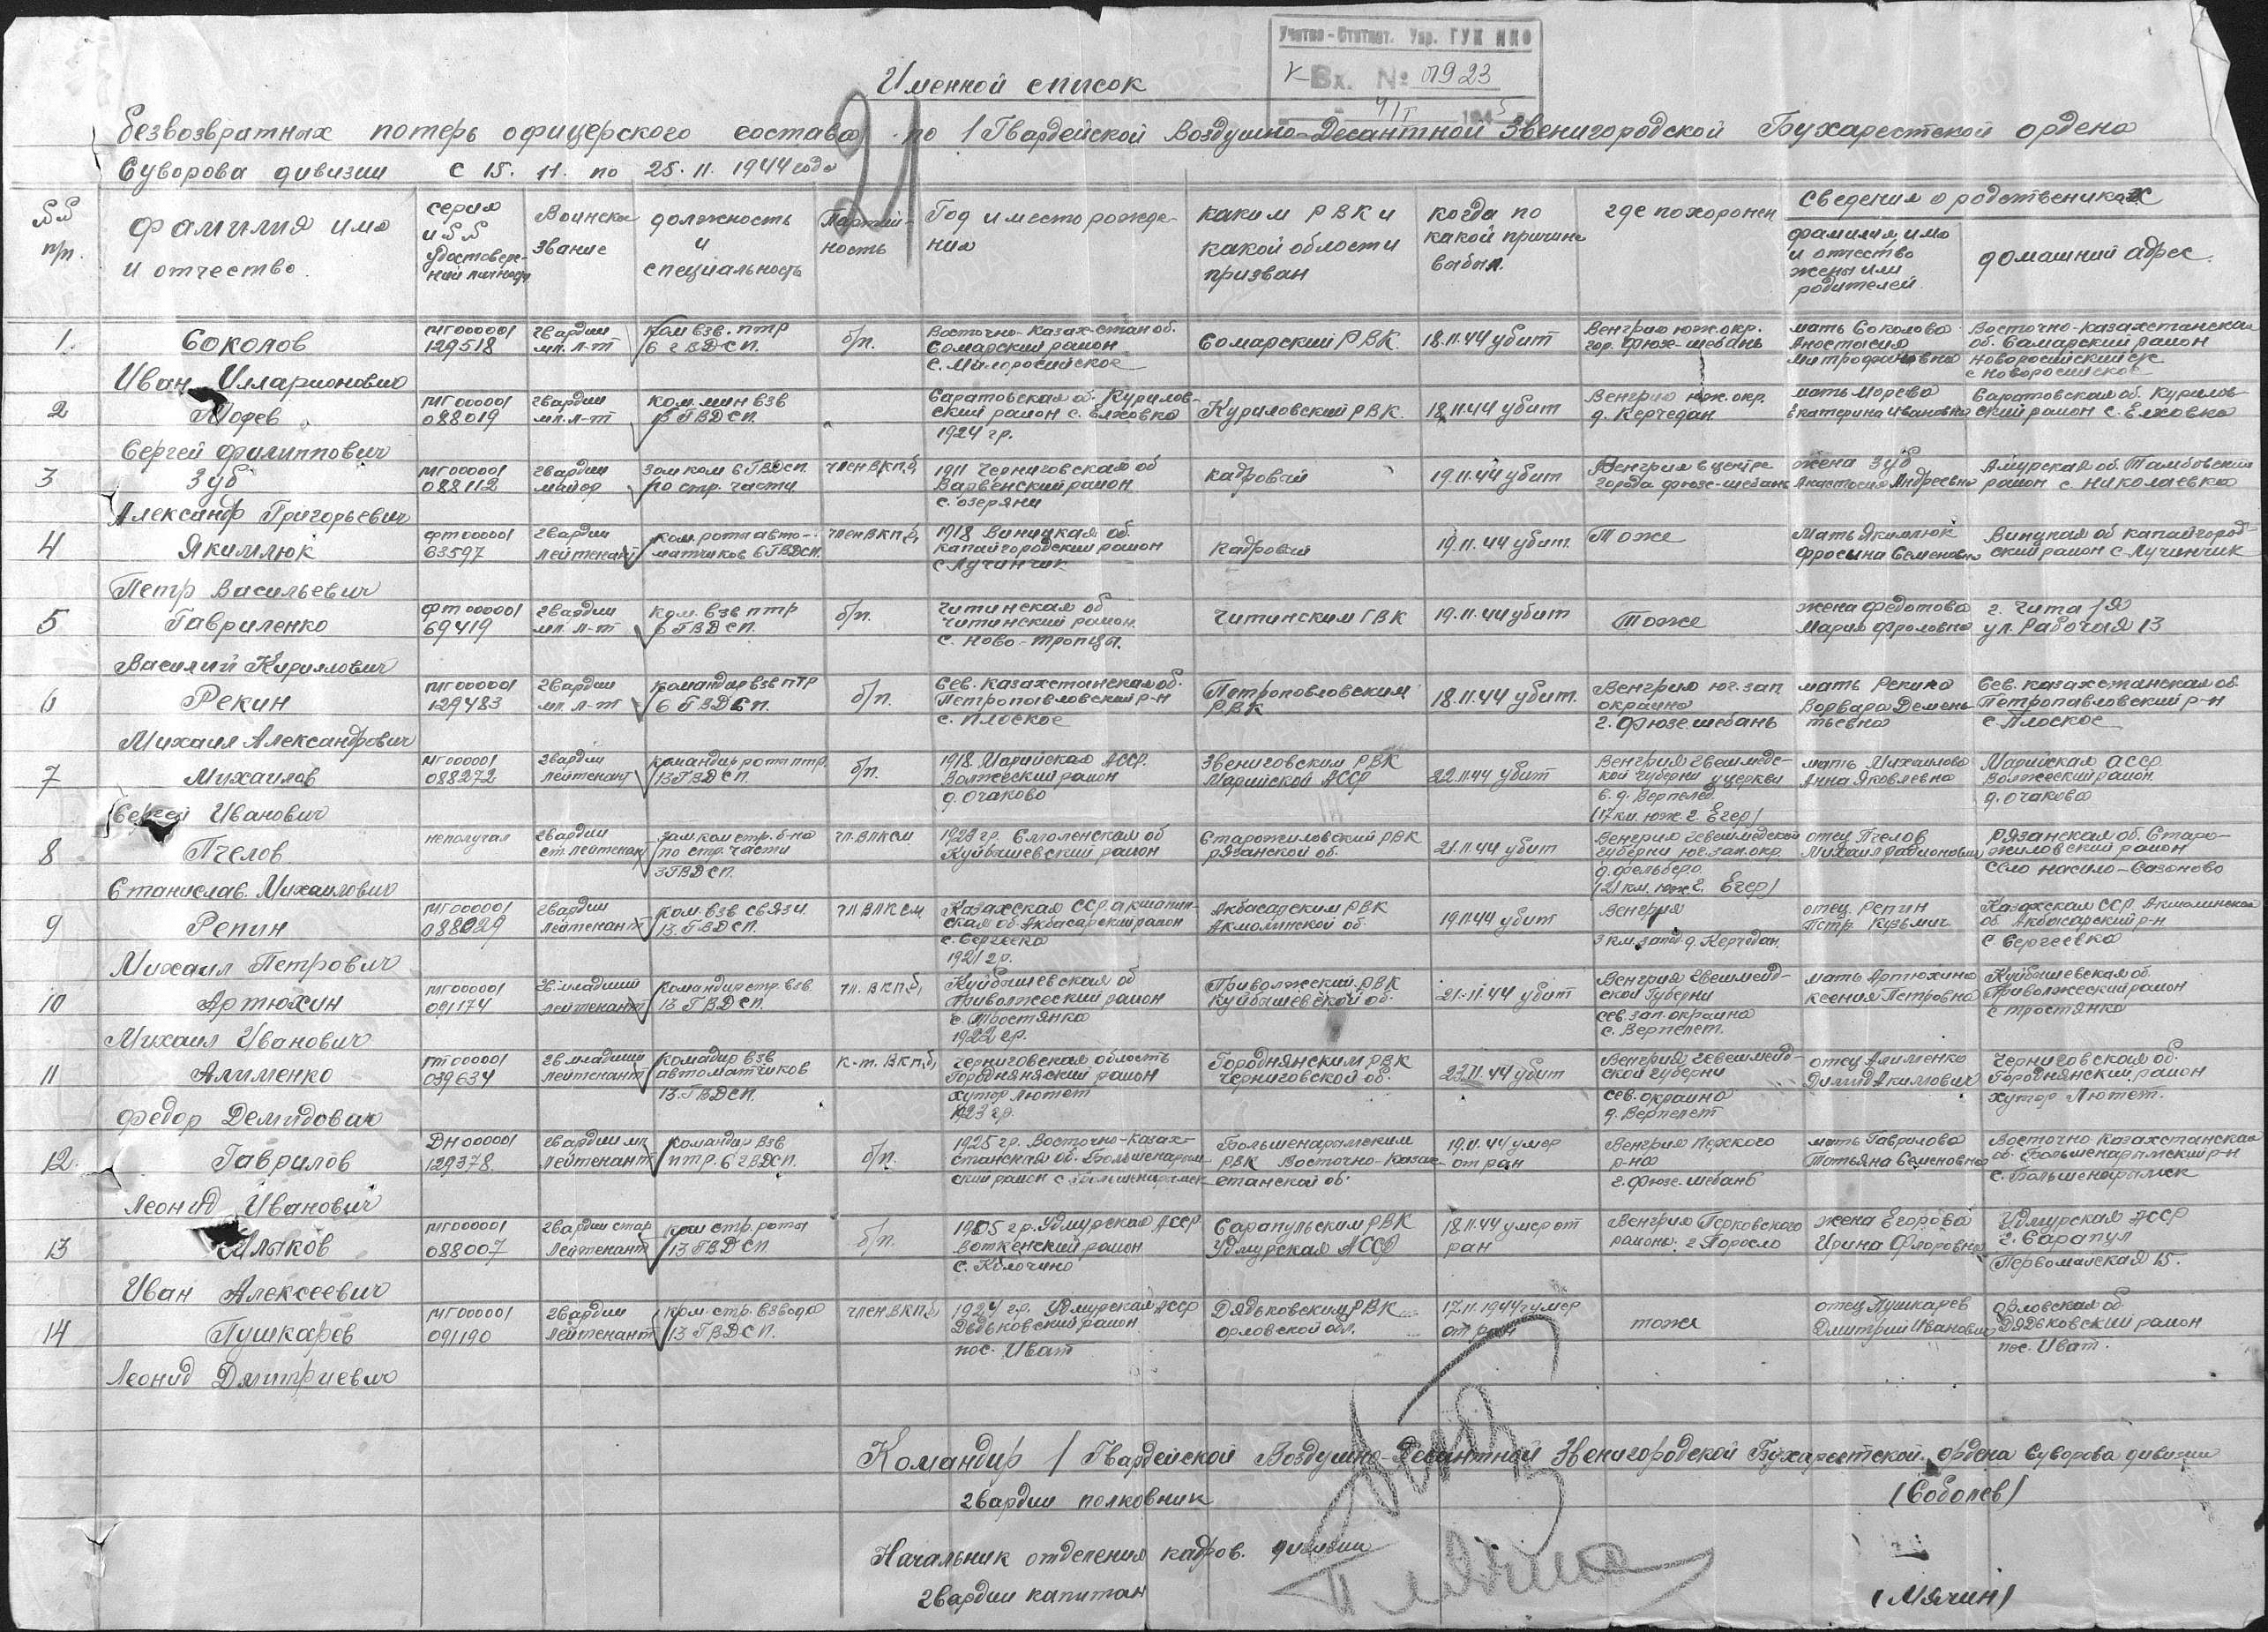 Учетно-Статист. Упр. ГУК НКО
Вх. №
Именной список
безвозвратных потерь офицерского состава по 1 Гвардейской Воздушно-Десантной Звенигородской Бухарестской ордена
Суворова дивизии с 15. 11. по 25. 11. 1944 года
21
№№ п/п.
фамилия имя и отчество
серия и №№ удостовере-ний личности
Воинское звание
должность и специальность
Партий-ность
Год и место рожде-ния
каким РВК и какой области призван
когда по какой причине выбыл.
где похоронен
сведения о родственниках
фамилия, имя и отчество жены или родителей
домашний адрес.
1. Соколов Иван Илларионович
МГ000001 129518
гвардии мл. л-т
Ком взв. птр 6 гВДСП.
б/п.
Восточно-Казах-стан об. Самарский район с. Малоросийское
Самарский РВК
18.11.44 убит
Венгрия юж. окр. гор. Фюзе-шебань
мать Соколова Анастасия Митрофановна
Восточно-казахстанская об. Самарский район новоросийский с/с с новоросийское
2 Морев Сергей Филиппович
МГ000001 088019
гвардии мл. л-т
ком. мин взв ГВДСП.
Саратовская об. Курилов-ский район с. Елховка 1924 гр.
Куриловский РВК.
18.11.44 убит
Венгрия юж. окр. д. Керчедан
мать Морева Екатерина Ивановна
Саратовская об. Курилов-ский район с. Елховка
3 Зуб Александр Григорьевич
МГ000001 088112
гвардии майор
Зам ком 6 ГВДСП по стр. части
член ВКП.б,
1911 Черниговская об Варвенский район с. озеряни
кадровый
19.11.44 убит
Венгрия в центре города Фюзе-шебань
жена Зуб Анастасия Андреевна
Амурская об. Тамбовский район с. Николаевка
4 Якимлюк Петр Васильевич
ФТ000001 63597
гвардии лейтенант
ком. роты авто-матчиков 6 ГВДСП.
член ВКП.б,
1918 Виницкая об. капайгородский район с Лучинчик
кадровый
19.11.44 убит.
Тоже
Мать Якимлюк Фросына Семеновна
Виницкая об капайгород-ский район с. Лучинчик
5 Гавриленко Василий Кирилович
ФТ000001 69419
гвардии мл. л-т
Ком. взв птр 6 ГВДСП.
б/п.
Читинская об Читинский район. с. Ново-троицы.
Читинским ГВК
19.11.44 убит
Тоже
жена Федотова Мария Фроловна
г. Чита 1 Я ул. Рабочая 13
6 Рекин Михаил Александрович
МГ000001 129483
гвардии мл. л-т
командир взв птр 6 ГВДСП.
б/п.
Сев. Казахстанская об. Петропавловский р-н с. Плоское
Петроповловским РВК
18.11.44 убит.
Венгрия юг. зап окраина г. Фюзешебань
мать Рекина Варвара Демень тьевна
Сев. казахстанская об. Петропавловский р-н с. Плоское
7 Михаилов Сергей Иванович
МГ000001 088272
гвардии лейтенант
командир роты птр 13 ГВДСП.
б/п.
1918 Марийская АССР. Волжеский район д. Очаково
Звениговским РВК Марийской АССР
22.11.44 убит
Венгрия Гевешмедс-кой Губерни у церкви в. д. Верпелед (17 км. юж. г. Егер)
мать Михаилова Анна Яковлевна
Марийская АССР Волжеский район д. очаково
8 Пчелов Станислав. Михаилович
неполучал
гвардии ст. лейтенант
Зам ком стр. б-на по стр. части 3 ГВДСП.
чл. ВЛКСМ
1923 гр. Смоленская об Куйбышевский район
Старожиловский РВК рязанской об.
21.11.44 убит
Венгрия Гевешмедской Губерни юг. зап. окр. д. фельдебро (21 км. юж г. Егер)
отец Пчелов Михаил Радионович
Рязанская об. Старо-жиловский район село насило-Сазоново
9 Репин Михаил Петрович
МГ000001 088029
гвардии лейтенант
ком. взв связи 13. ГВДСП.
чл ВЛКСМ
Казахская ССР акмолин-ская об. Акбасарский район с. Сергеевка 1921 гр.
Акбасарским РВК Акмолинской об.
19.11.44 убит
Венгрия 3 км. запад. д. Керчедан.
отец Репин Петр Кузьмич
Казахская ССР. Акмолинская об Акбасарский р-н с Сергеевка
10 Артюхин Михаил Иванович
МГ000001 091174
гв. младший лейтенант
Командир стр. взв. 13 ГВДСП.
чл. ВКП.б,
Куйбышевская об Приволжеский район с. Тростянка 1922 гр.
Приволжский РВК Куйбышевской об.
21.11.44 убит
Венгрия Евешмейд-ской Губерни сев. зап. окраина с. Верпелет.
мать Артюхина ксения Петровна
Куйбышевская об. Приволжеский район с тростянка
11 Алименко Федор Демидович
ПТ000001 039634
гв младший лейтенант
командир взв автоматчиков 13. ГВДСП.
к-т. ВКП.б,
Черниговская область Городнянский район хутор Лютет 1923 гр.
Городнянским РВК Черниговской об.
23.11.44 убит
Венгрия Гевешмейд-ской губерни сев. окраина д. Верпелет
отец Алименко Димид Акимович
Черниговская об. Городнянский район хутор Лютет.
12. Гаврилов Леонид Иванович
ДН000001 129378.
гвардии мл. лейтенант
командир взв птр. 6 гВДСП.
б/п.
1925 гр. Восточно-Казах-станская об. Большенарым-ский район с Большенарымск
Большенарамским РВК Восточно-Казах-станской об.
19.11.44 умер от ран
Венгрия р-на г. Фюзе. шебань
мать Гаврилова Татьяна Семеновна
Восточно-Казахстанская об. Большенарамский р-н с. Большенарамск
13 Иван Алексеевич
МГ000001 088007
гвардии стар лейтенант
ком стр. роты 13 ГВДСП
б/п.
1905 гр. Удмурская АССР Воткенский район с. Колочино
Сарапульским РВК Удмурская АССР
18.11.44 умер от ран
Венгрия района г Поросло
жена Егорова Ирина Флоровна
Удмурская АССР г. Сарапул Первомайская 15.
14 Пушкарев Леонид Дмитриевич
МГ000001 091190
гвардии лейтенант
Ком. стр. взвода 13 ГВДСП.
член ВКП.б,
1924 гр. Удмурская АССР Дедьковский район пос. Иват
Дядьковским РВК орловской обл.
17.11.1944 г умер от ран
тоже
отец Пушкарев Дмитрий Иванович
Орловская об Дядьковский район пос. Иват.
Командир 1 Гвардейской Воздушно-Десантной Звенигородской Бухарестской ордена Суворова дивизии
гвардии полковник (Соболев)
Начальник отделения кадров. дивизии
гвардии капитан (Мячин)